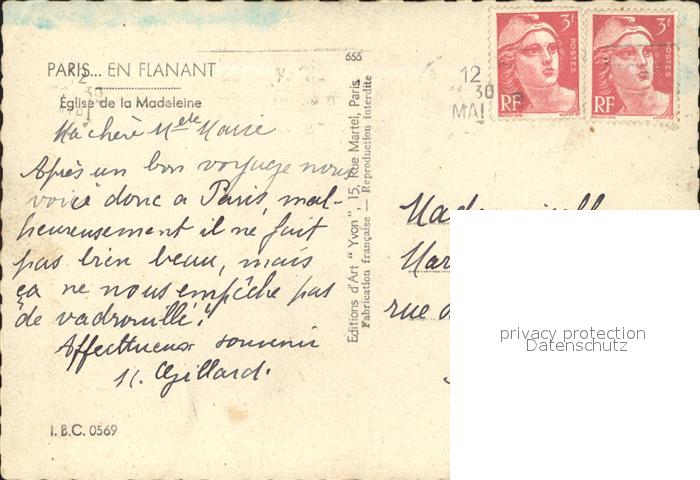 PARIS... EN FLANANT
Église de la Madeleine
Ma chère Melle Marie
Après un bon voyage nous
voici donc à Paris, mal-
heureusement il ne fait
pas bien beau, mais
ça ne nous empêche pas
de vadrouillé!
Affectueux souvenir
Gillard.
I.B.C. 0569
655
Editions d'Art "Yvon", 15, Rue Martel, Paris
Fabrication française — Reproduction interdite
12
30
MAI
3f
POSTES
RF
3f
POSTES
RF
12
30
rue
privacy protection
Datenschutz